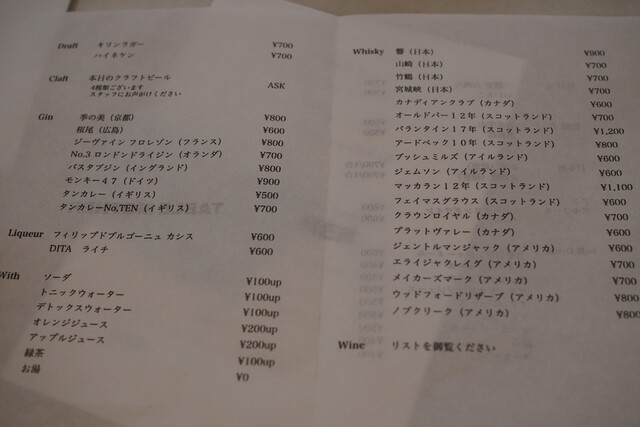 Draft キリンラガー ¥700
ハイネケン ¥700
Claft 本日のクラフトビール ASK
4種類ございます
スタッフにお声がけください
Gin 季の美（京都） ¥800
桜尾（広島） ¥600
ジーヴァイン フロレゾン（フランス） ¥800
No.3 ロンドンドライジン（オランダ） ¥700
バスタブジン（イングランド） ¥800
モンキー４７（ドイツ） ¥900
タンカレー（イギリス） ¥500
タンカレーNo,TEN（イギリス） ¥700
Liqueur フィリップドブルゴーニュ カシス ¥600
DITA ライチ ¥600
With ソーダ ¥100up
トニックウォーター ¥100up
デトックスウォーター ¥100up
オレンジジュース ¥200up
アップルジュース ¥200up
緑茶 ¥100up
お湯 ¥0
Whisky 響（日本） ¥900
山崎（日本） ¥700
竹鶴（日本） ¥700
宮城峡（日本） ¥700
カナディアンクラブ（カナダ） ¥600
オールドパー１２年（スコットランド） ¥700
バランタイン１７年（スコットランド） ¥1,200
アードベック１０年（スコットランド） ¥800
ブッシュミルズ（アイルランド） ¥600
ジェムソン（アイルランド） ¥600
マッカラン１２年（スコットランド） ¥1,100
フェイマスグラウス（スコットランド） ¥600
クラウンロイヤル（カナダ） ¥700
ブラットヴァレー（カナダ） ¥600
ジェントルマンジャック（アメリカ） ¥600
エライジャクレイグ（アメリカ） ¥700
メイカーズマーク（アメリカ） ¥700
ウッドフォードリザーブ（アメリカ） ¥800
ノブクリーク（アメリカ） ¥800
Wine リストを御覧ください